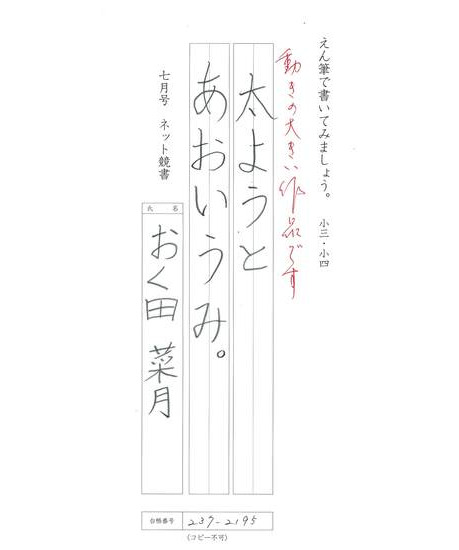 えん筆で書いてみましょう。 小三・小四
動きの大きい作品です
太ようと
あおいうみ。
七月号 ネット競書
氏名
おく田 菜月
台帳番号 237-2195
(コピー不可)